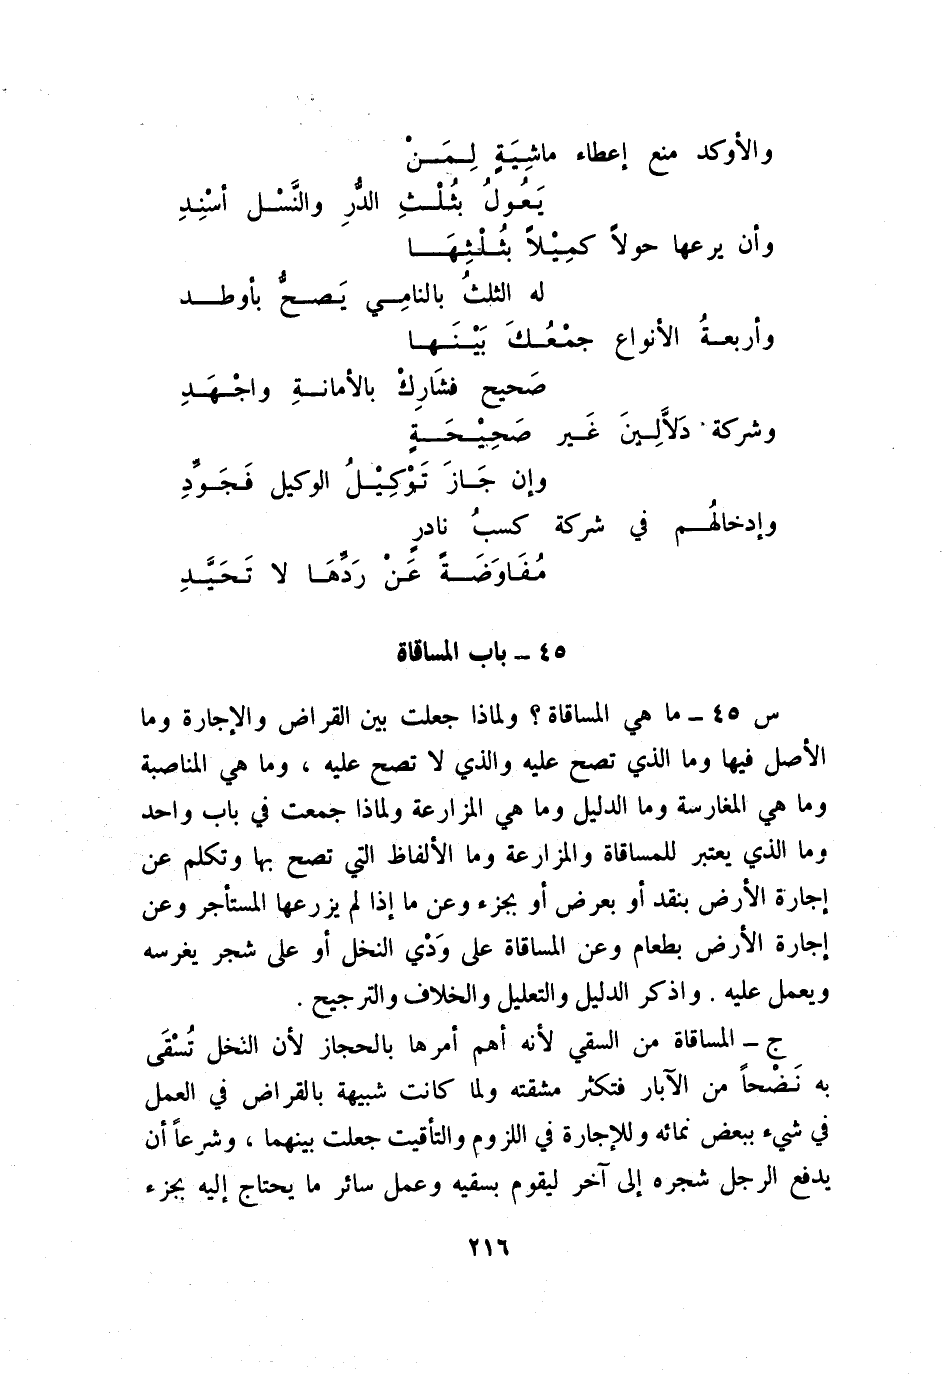 والأوكد منع إعطاء ماشِيَةٍ لِمَنْ
يَعُولُ بثُلْثِ الدُّرِ والنَّسْل أسْنِدِ
وأن يرعها حولاً كمِيْلاً بثُلْثِهَا
له الثلثُ بالنامِي يَصحُّ بأوطد
وأربعةُ الأنواع جمْعُكَ بَيْنَها
صَحيح فشَارِكْ بالأمانةِ واجْهَدِ
وشركة دَلاَّلِينَ غَير صَحِيْحَةٍ
وإن جَازَ تَوْكِيْلُ الوكيل فَجَوِّدِ
وإدخالهُم في شركة كسبُ نادرٍ
مُفَاوَضَةً عَنْ رَدِّهَا لا تَحَيَّدِ
٤٥ ــ باب المساقاة
س ٤٥ ــ ما هي المساقاة ؟ ولماذا جعلت بين القراض والإجارة وما
الأصل فيها وما الذي تصح عليه والذي لا تصح عليه ، وما هي المناصبة
وما هي المغارسة وما الدليل وما هي المزارعة ولماذا جمعت في باب واحد
وما الذي يعتبر للمساقاة والمزارعة وما الألفاظ التي تصح بها وتكلم عن
إجارة الأرض بنقد أو بعرض أو بجزء وعن ما إذا لم يزرعها المستأجر وعن
إجارة الأرض بطعام وعن المساقاة على وَدْي النخل أو على شجر يغرسه
ويعمل عليه . واذكر الدليل والتعليل والخلاف والترجيح .
ج ــ المساقاة من السقي لأنه أهم أمرها بالحجاز لأن النخل تُسْقَى
به نَضْحاً من الآبار فتكثر مشقته ولما كانت شبيهة بالقراض في العمل
في شيء ببعض نمائه وللإجارة في اللزوم والتأقيت جعلت بينهما ، وشرعاً أن
يدفع الرجل شجره إلى آخر ليقوم بسقيه وعمل سائر ما يحتاج إليه بجزء
٢١٦